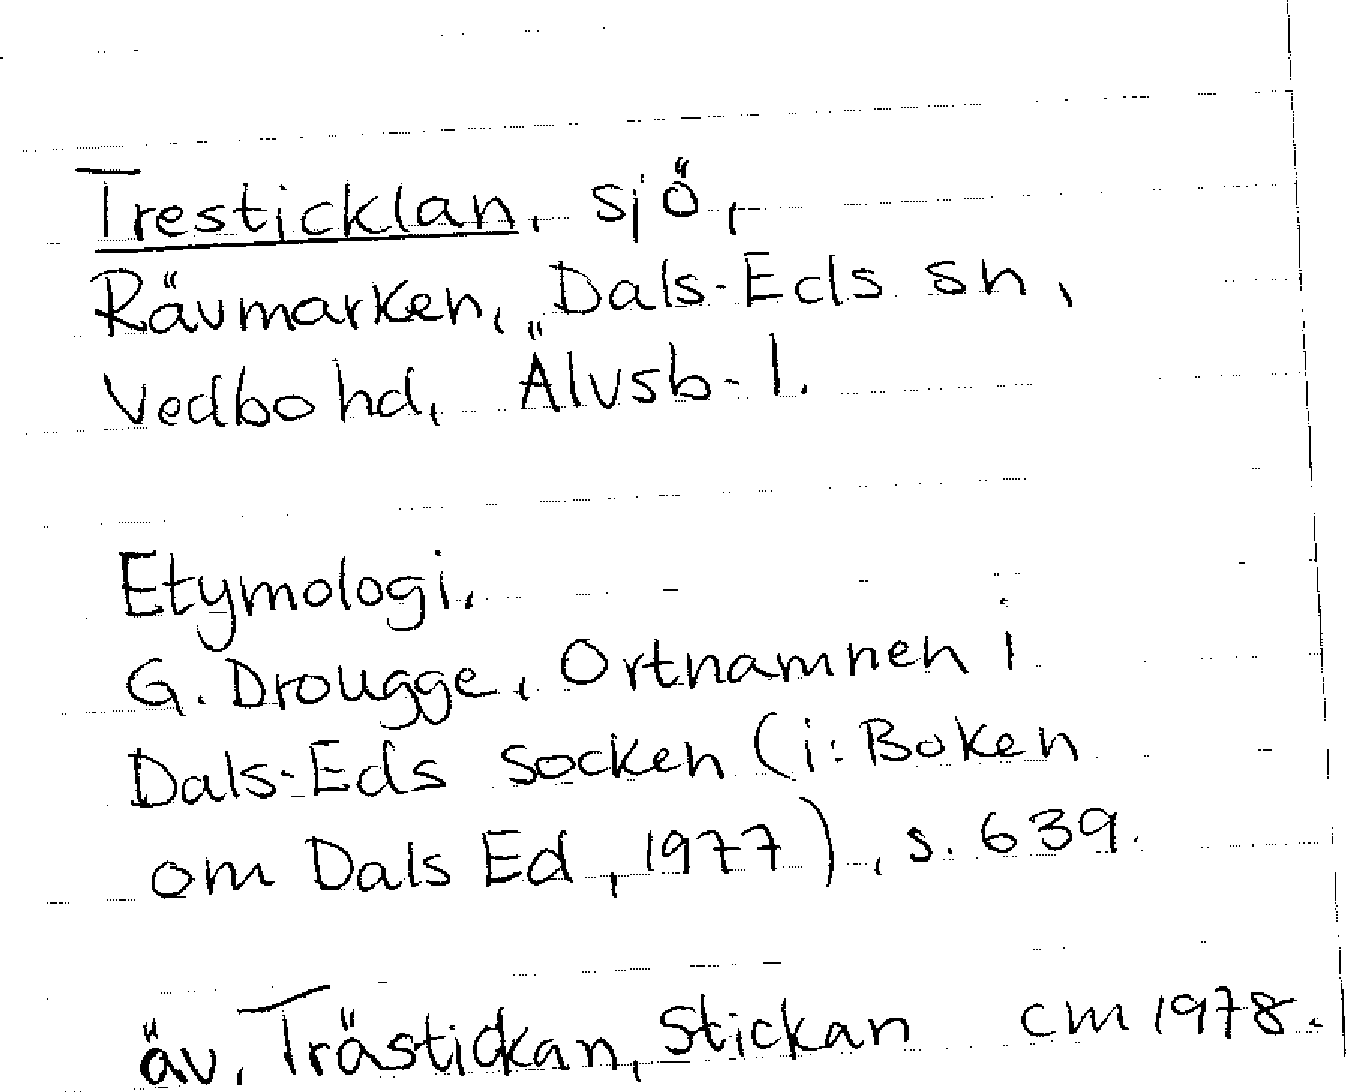 Tresticklan, sjö,
Rävmarken, Dals-Eds sn,
Vedbo hd, Älvsb. l.
Etymologi.
G. Drougge, Ortnamnen i
Dals-Eds socken (i: Boken
om Dals Ed, 1977), s. 639.
äv. Trästickan, Stickan cm 1978.